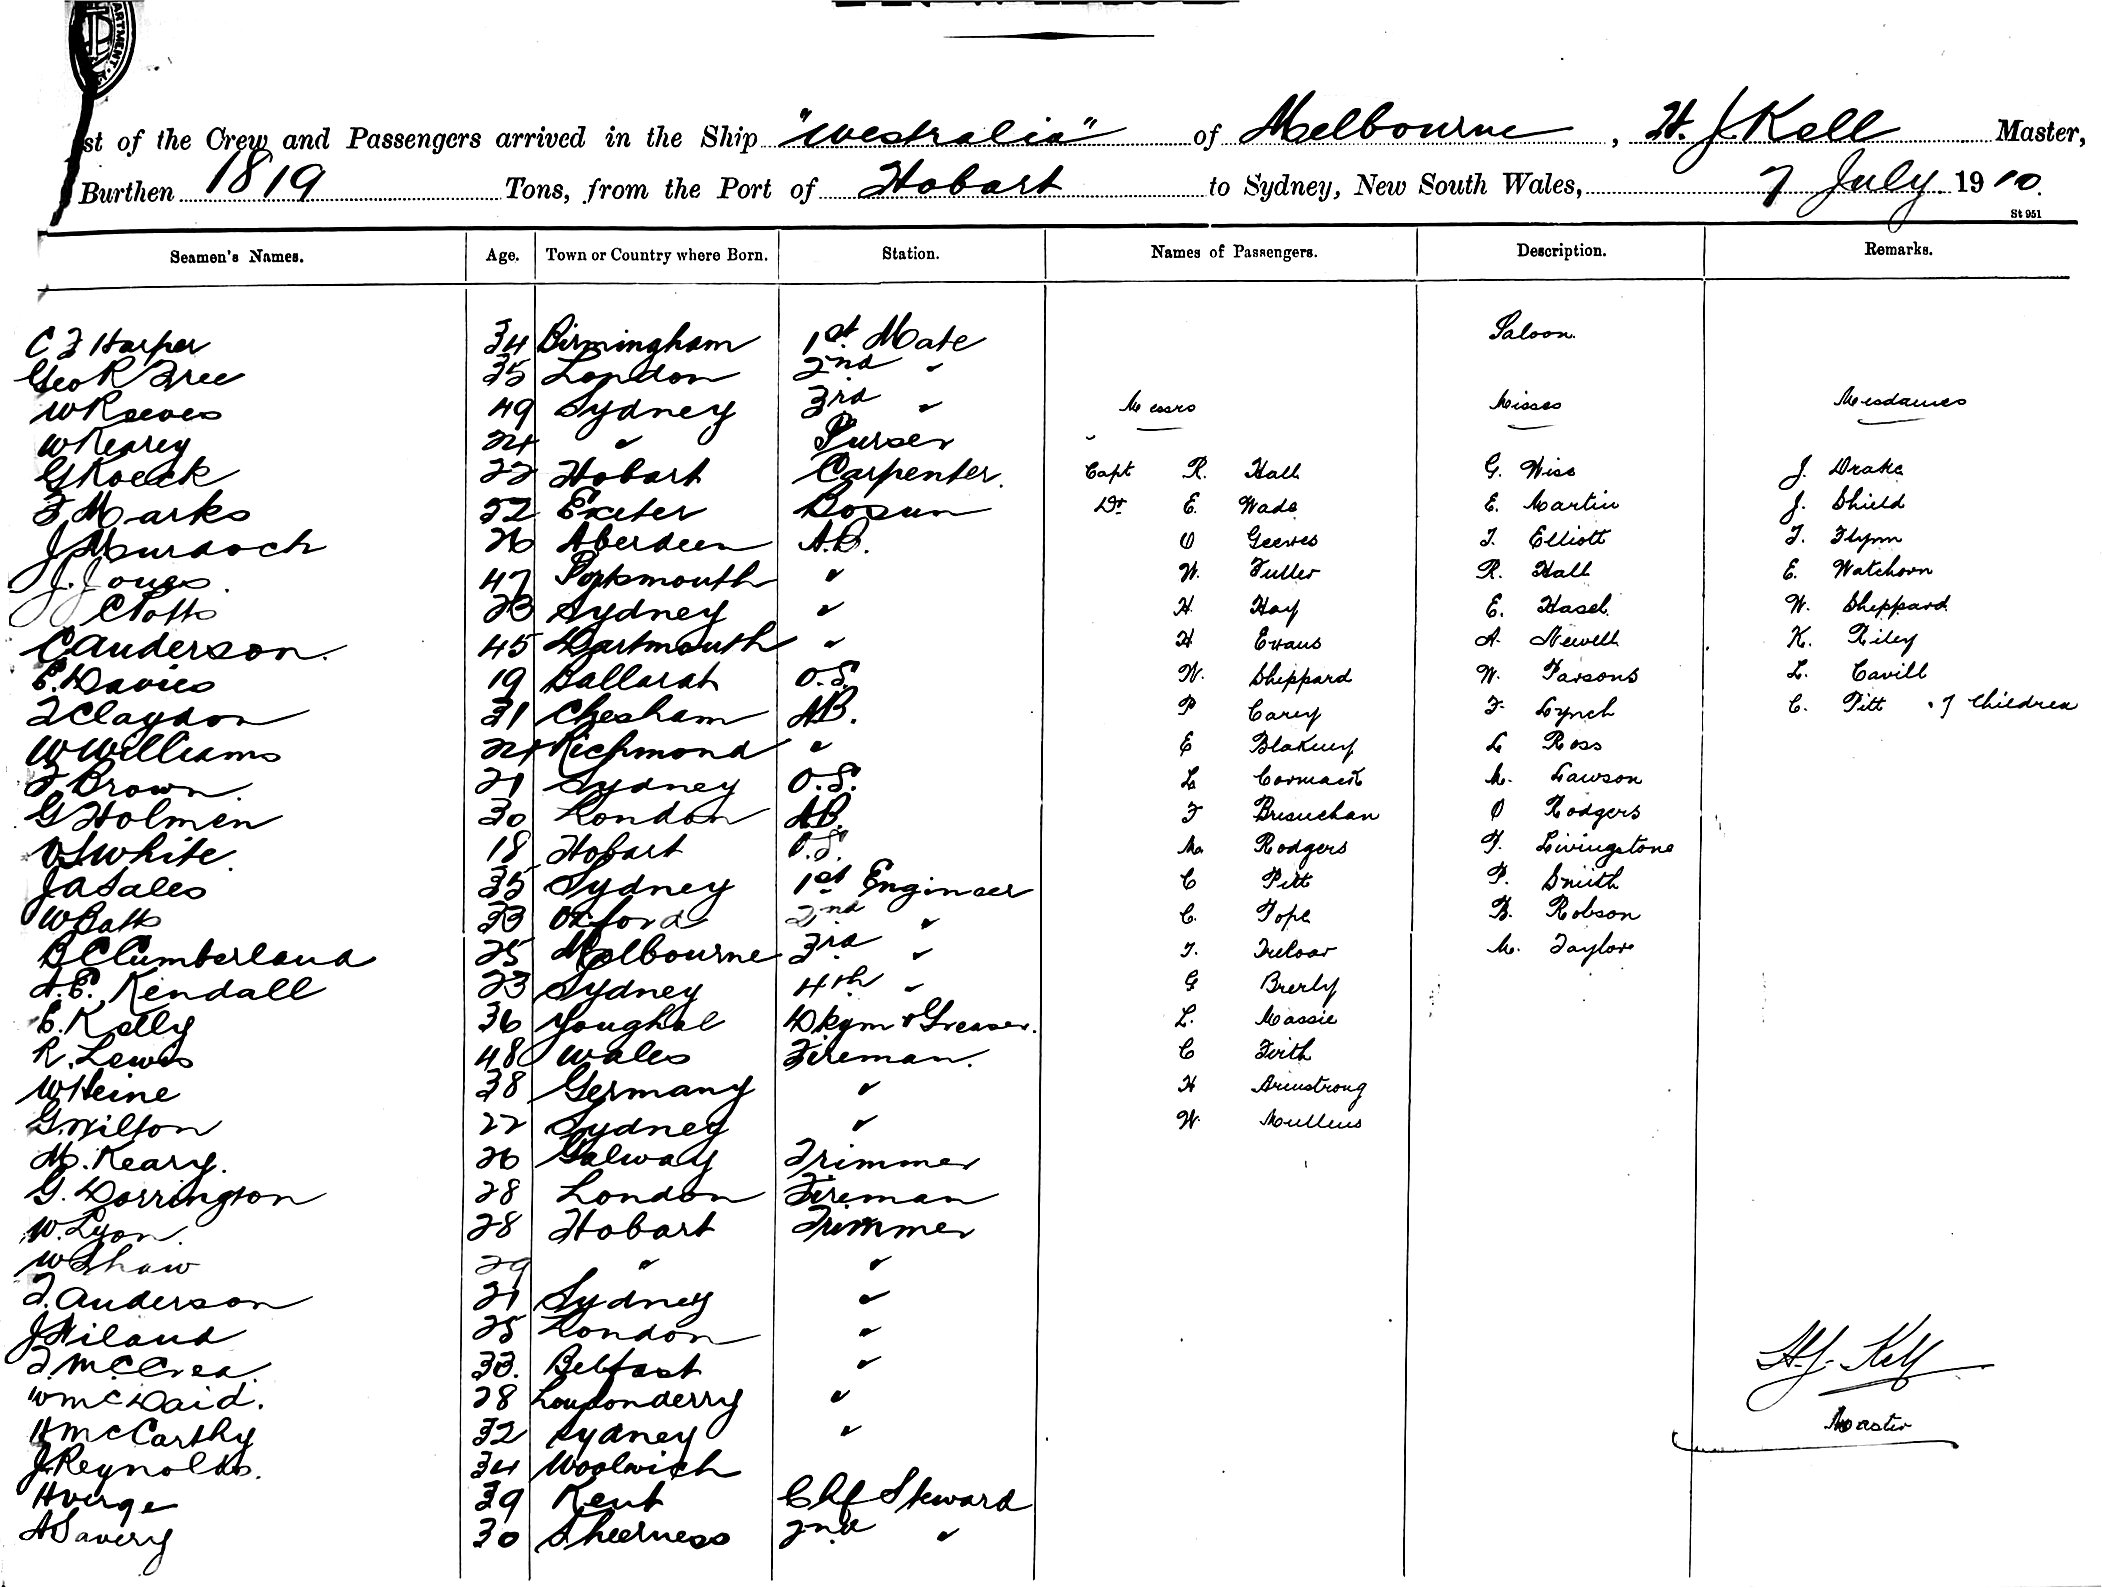 st of the Crew and Passengers arrived in the Ship "Westralia" of Melbourne, H. J. Kell Master,
Burthen 1819 Tons, from the Port of Hobart to Sydney, New South Wales, 7 July 1910.
St 951
Seamen's Names. Age. Town or Country where Born. Station. Names of Passengers. Description. Remarks.
C F Harper 34 Birmingham 1st. Mate Saloon.
Geo R Free 35 London 2nd "
W Reeves 49 Sydney 3rd " Messrs Misses Mesdames
W Kearey 24 " Purser
G Koeck 22 Hobart Carpenter. Capt R. Hall G. Wise J. Drake
F Marks 52 Exeter Bosun Dr. E. Wade E. Martin J. Shield
J Murdoch 26 Aberdeen A.B. O Geeves T. Elliott T. Flynn
J. Jones. 47 Portsmouth " W. Fuller R. Hall E. Watchorn
C Potts 23 Sydney " H. Hay E. Hasel W. Sheppard
C Anderson. 45 Dartmouth " H Evans A. Newell K. Riley
E. Davies 19 Ballarat O.S. W. Sheppard W. Parsons L. Cavill
F Claydon 31 Chesham AB. P Carey F. Lynch C. Pitt . 7 Children
W Williams 24 Richmond " E Blakney L Ross
F Brown. 21 Sydney O.S. L Cormack M. Lawson
G Holmen 30 London AB. F Bresuchan O Rodgers
O S White. 18 Hobart O.S. M. Rodgers F. Livingstone
J A Sales 35 Sydney 1st Engineer C Pitt P. Smith
W Batts 33 Oxford 2nd " C. Pope B. Robson
B C Cumberland 25 Melbourne 3rd " T. Treloar M. Taylor
A. E. Kendall 23 Sydney 4th " G Brerly
E. Kelly 36 Youghal Dkym & Greaser. L. Massie
R. Lewis 48 Wales Fireman. C Frith
W Heine 38 Germany " H Armstrong
G. Wilton 22 Sydney " W. Mullens
M. Keary. 26 Galway Trimmer
G. Dorrington 28 London Fireman
W. Lyon. 28 Hobart Trimmer
W Shaw 29 " "
F. Anderson 21 Sydney "
J Hiland 25 London "
F. McCrea. 33. Belfast "
W McDaid. 28 Londonderry "
H McCarthy 32 Sydney "
J. Reynolds. 34 Woolwich
H Verge 39 Kent Chf Steward
A Savery 30 Sheerness 2nd "
H. J. Kell
Master